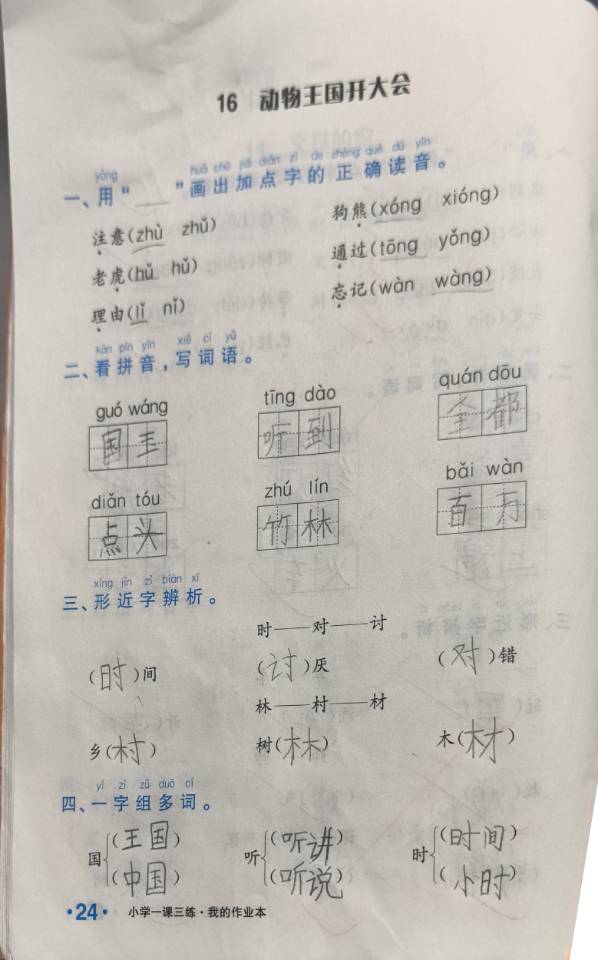 16 动物王国开大会
yòng huà chū jiā diǎn zì de zhèng què dú yīn
一、用“ ”画出加点字的正确读音。
注意(zhù zhǔ) 狗熊(xóng xióng)
老虎(hǔ hǔ) 通过(tōng yǒng)
理由(lǐ nǐ) 忘记(wàn wàng)
kàn pīn yīn xiě cí yǔ
二、看拼音，写词语。
guó wáng tīng dào quán dōu
国王 听到 全都
diǎn tóu zhú lín bǎi wàn
点头 竹林 百万
xíng jìn zì biàn xī
三、形近字辨析。
时——对——讨
(时)间 (讨)厌 (对)错
林——村——材
乡(村) 树(林) 木(材)
yí zì zǔ duō cí
四、一字组多词。
国 (王国) 听 (听讲) 时 (时间)
(中国) (听说) (小时)
·24· 小学一课三练·我的作业本